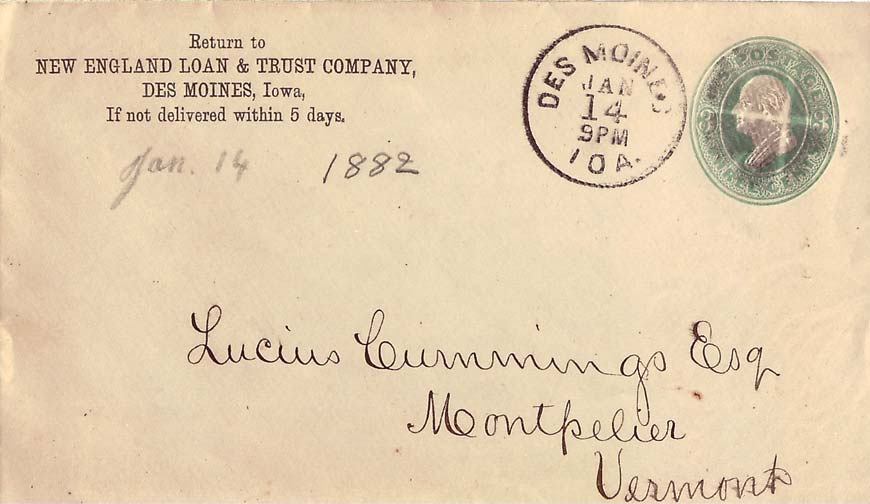 Return to
NEW ENGLAND LOAN & TRUST COMPANY,
DES MOINES, Iowa,
If not delivered within 5 days.
Jan. 14 1882
DES MOINES
JAN
14
9PM
IOA.
Lucius Cummings Esq
Montpelier
Vermont